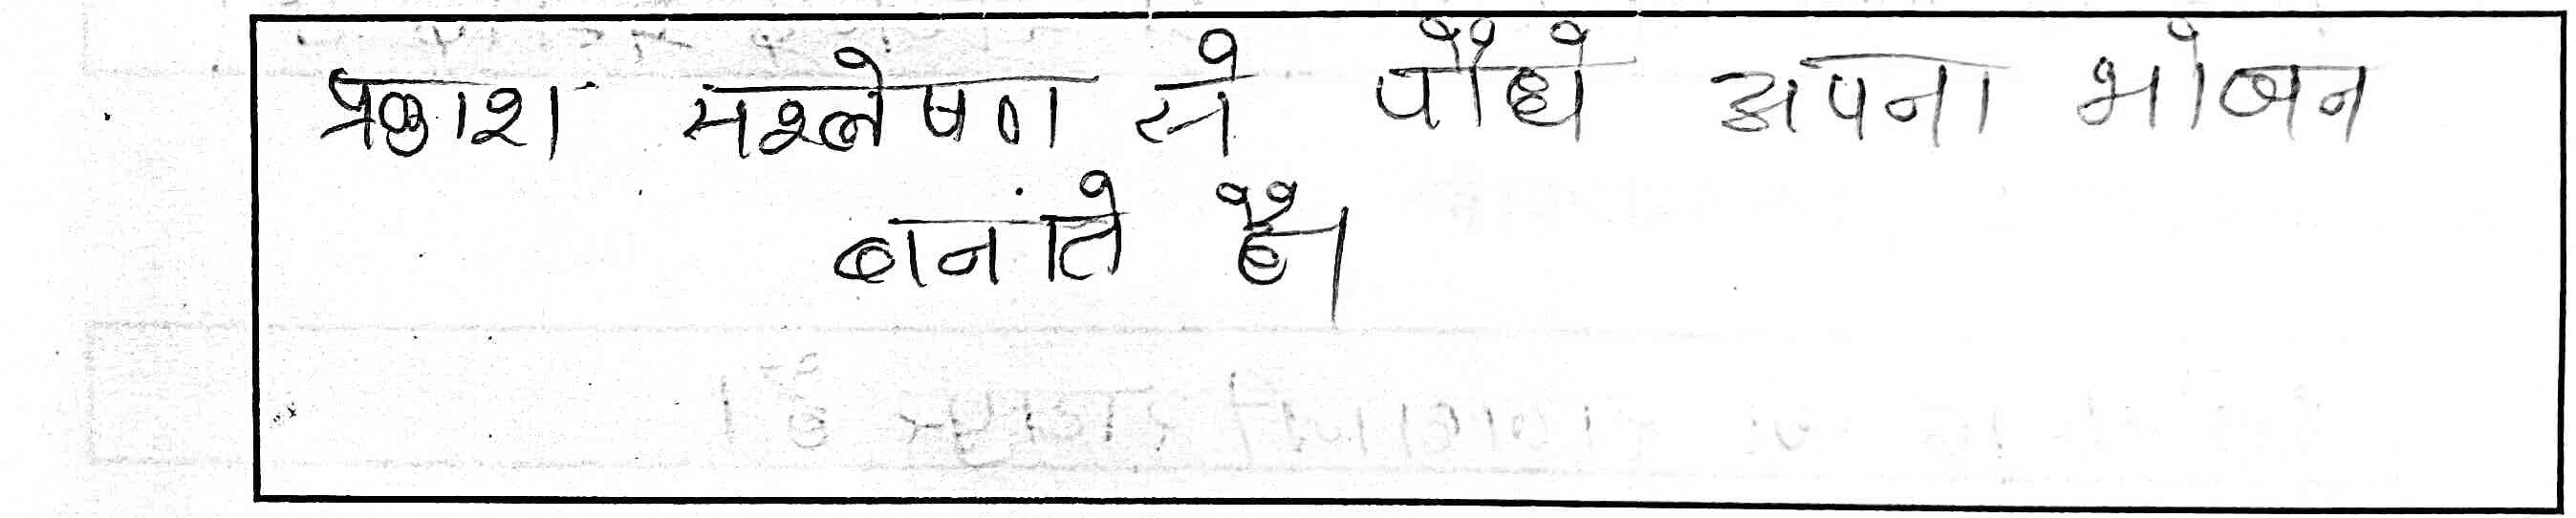 प्रकाश सश्लेषण से पौधे अपना भोजन
बनाते है।